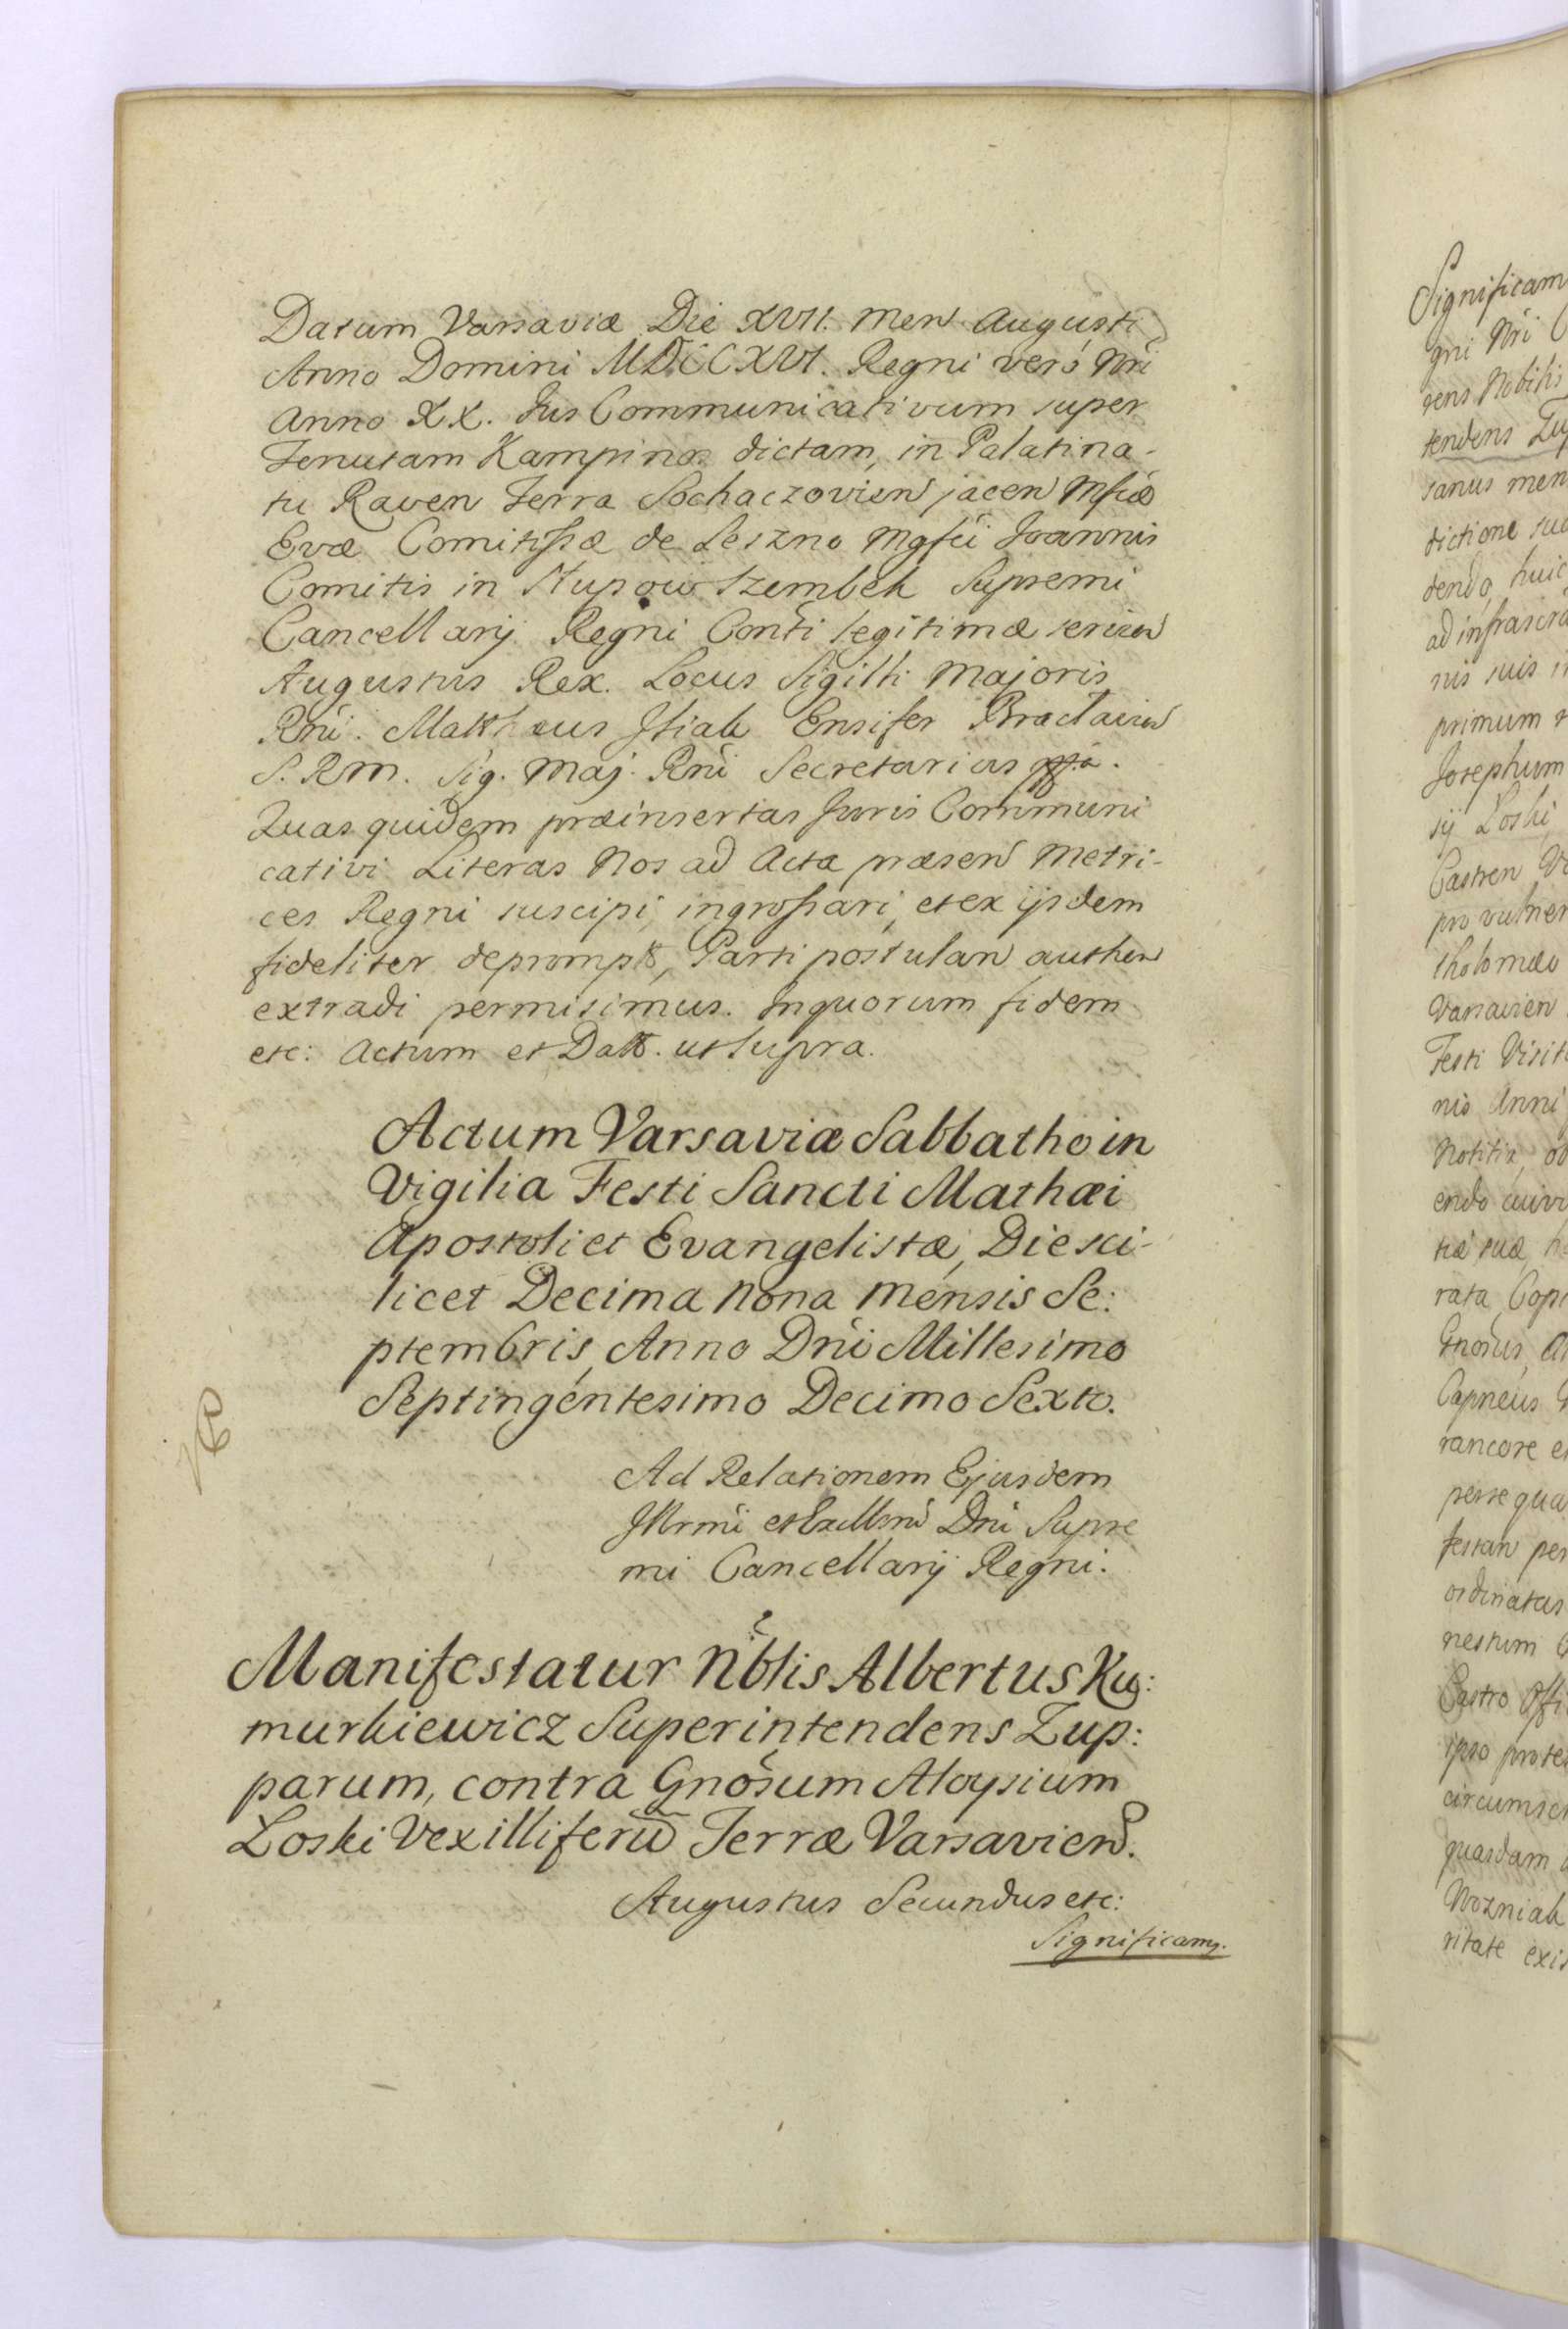 Datum Varsaviæ Die XVII. Men Augusti
Anno Domini MDCCXVI. Regni verò Nri
Anno XX. Jus Communicativum super
Tenutam Kampinos dictam, in Palatina-
tu Raven Terra Sochaczovien jacen Mfcæ
Evæ Comitissæ de Leszno Mgfci Joannis
Comitis in Slupow Szembek Supremi
Cancellarij Regni Conti legitimæ servien
Augustus Rex. Locus Sigilli Majoris
Rni. Matthæus Ffiak Ensifer Braclavien
S. R M. Sig. Maj. Rni Secretarius
Quas quidem præinsertas Juris Communi
cativi Literas Nos ad Acta præsen Metri-
ces Regni suscipi, ingrossari, et ex ijsdem
fideliter deprompt, Parti postulan authen
extradi permisimus. Inquorum fidem
etc: Actum et Datt. ut supra.
Actum Varsaviæ Sabbatho in
Vigilia Festi Sancti Mathæi
Apostoli et Evangelistæ, Die sci-
licet Decima Nona Mensis Se:
ptembris, Anno Dni Millesimo
Septingentesimo Decimo Sexto.
Ad Relationem Ejusdem
Jllrmi et Excllmi Dni Supre
mi Cancellarij Regni.
Manifestatur Nblis Albertus Ku:
murkiewicz Superintendens Zup:
parum, contra Gnosum Aloysium
Loski Vexilliferu Terræ Varsavien.
Augustus Secundus etc:
Significamg.
Significam
gni Nri
rens Nobilis
tendens Zup
sanus men
dictione sua
dendo, huic
ad infrascra
nis suis i
primum
Josephum
sij Loski
Castren V
pro vulner
tholomæo
Varsavien
Festi Visit
nis Anni
Notitia, ob
endo cuivi
tiæ suæ,
rata Copi
Gnosus, A
Capneus
rancore e
persequa
festan per
ordinatas
nestum
Castro Offi
ipso protes
circumscr
quasdam
Wozniak
ritate exis